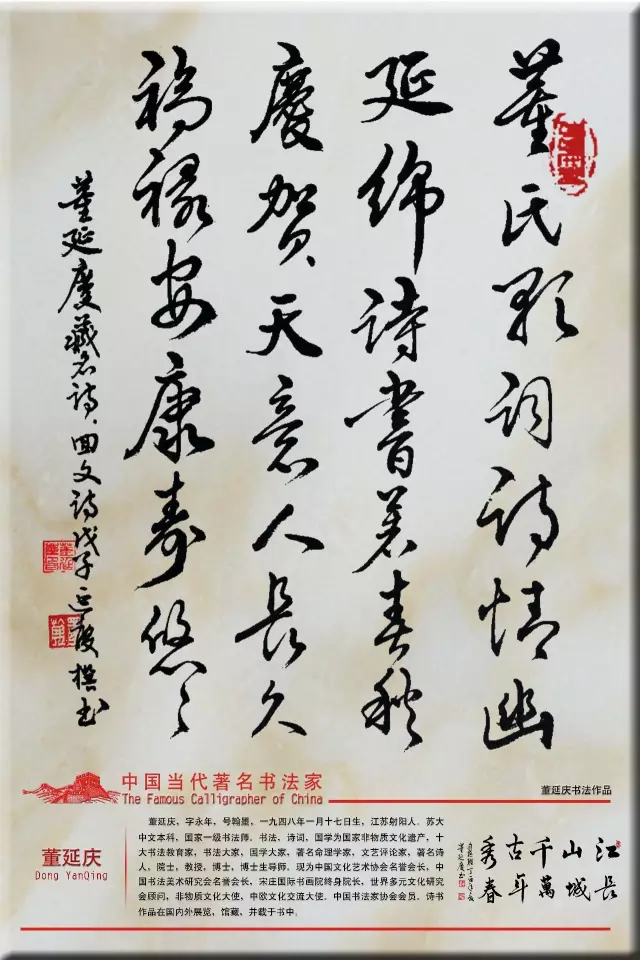 董氏歌詞詩情幽
延綿詩書著春秋
慶賀天意人長久
福祿安康壽悠々
董延慶藏名詩、回文詩戊子延慶撰书
中国当代著名书法家
The Famous Calligrapher of China
董延庆书法作品
董延庆
Dong YanQing
董延庆，字永年，号翰墨，一九四八年一月十七日生，江苏射阳人。苏大
中文本科，国家一级书法师。书法，诗词，国学为国家非物质文化遗产，十
大书法教育家，书法大家，国学大家，著名命理学家，文艺评论家，著名诗
人，院士，教授，博士，博士生导师。现为中国文化艺术协会名誉会长，中
国书法美术研究会名誉会长，宋庄国际书画院终身院长，世界多元文化研究
会顾问，非物质文化大使，中欧文化交流大使，中国书法家协会会员。诗书
作品在国内外展览，馆藏，并载于书中。
江山千古秀
長城萬年春